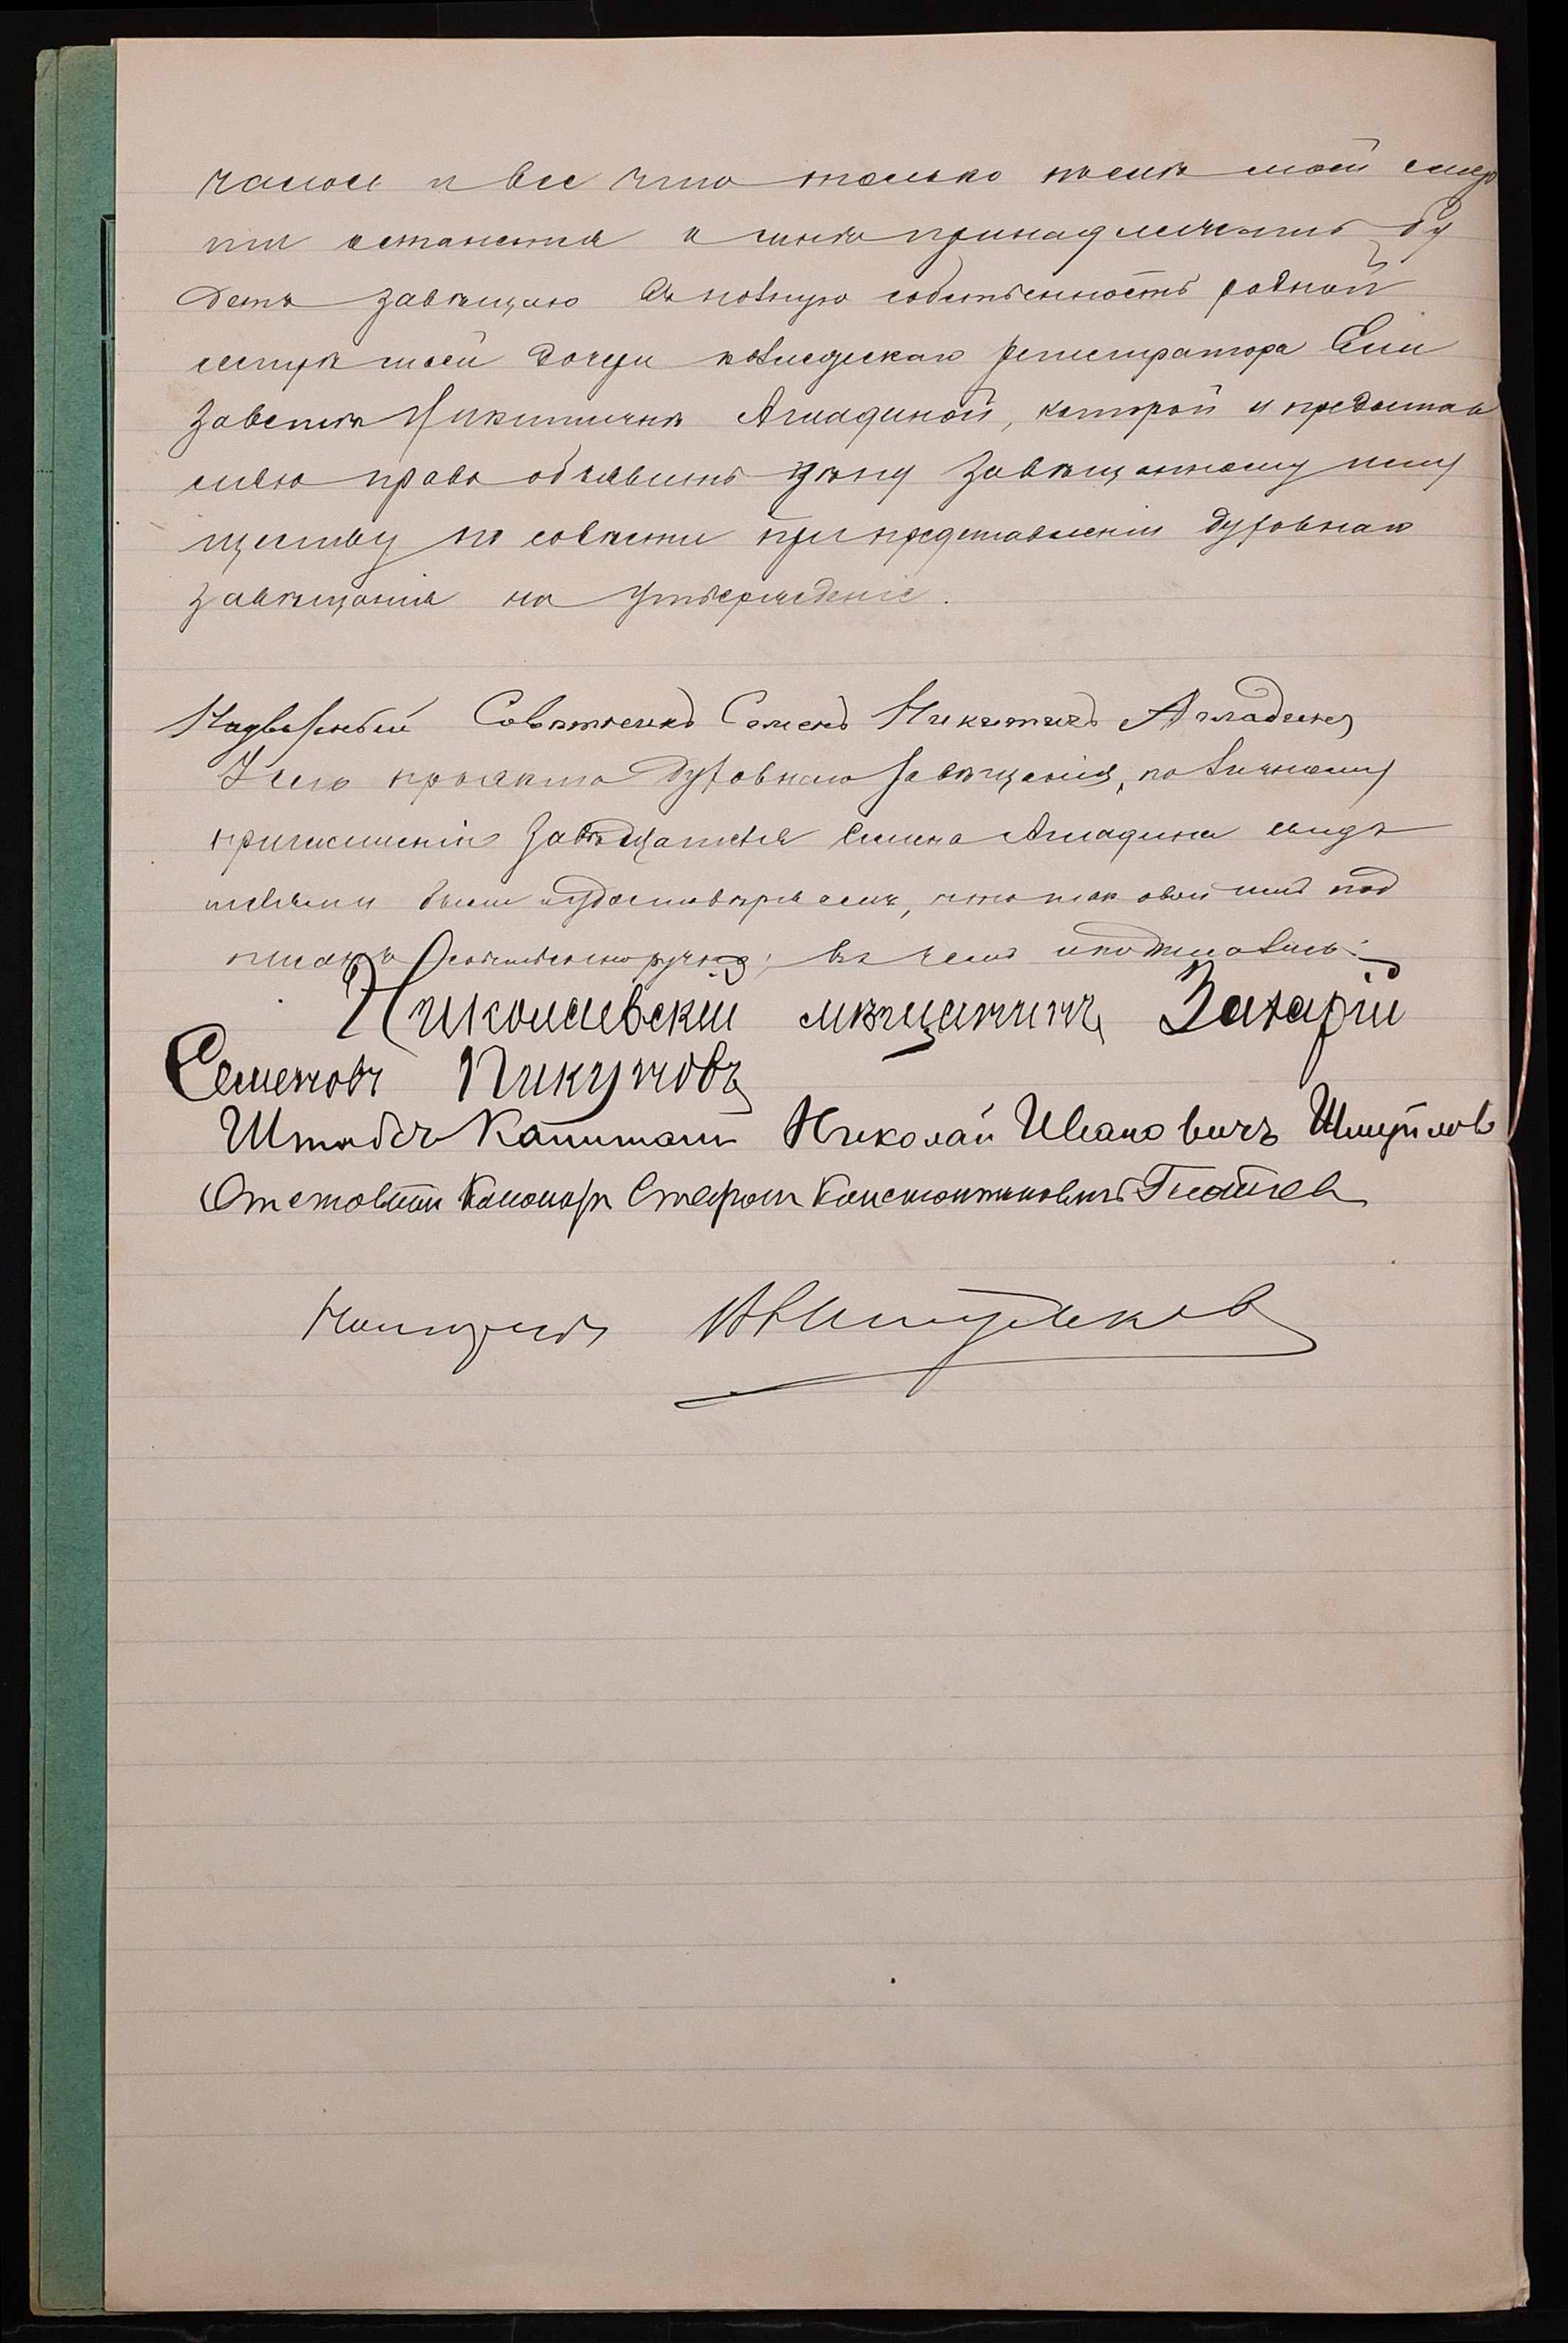 и все что только послѣ моей смер
ти останется и мнѣ принадлежать бу
детъ завѣщаю въ полную собственность родной
сестрѣ моей дочери коллежскаго регистратора Ели
заветѣ Никитичнѣ Агладиной, которой и предостав
ляю право объявить цѣну завѣщанному иму
ществу по совѣсти при представленіи духовнаго
завѣщанія на утвержденіе.
Надворный Совѣтникъ Семенъ Никитичъ Агладинъ
У сего проэкта духовнаго завѣщанія, по личному
приглашенію завѣщателя Семена Агладина свидѣ
телями были и удостовѣряемъ, что таковой имъ под
писанъ собственноручно, въ чемъ и подписались:
Николаевскій мѣщанинъ Захарій
Семеновъ Пикуновъ
Штабсъ Капитанъ Николай Ивановичъ
Отставной Константиновичъ
Нотаріусъ